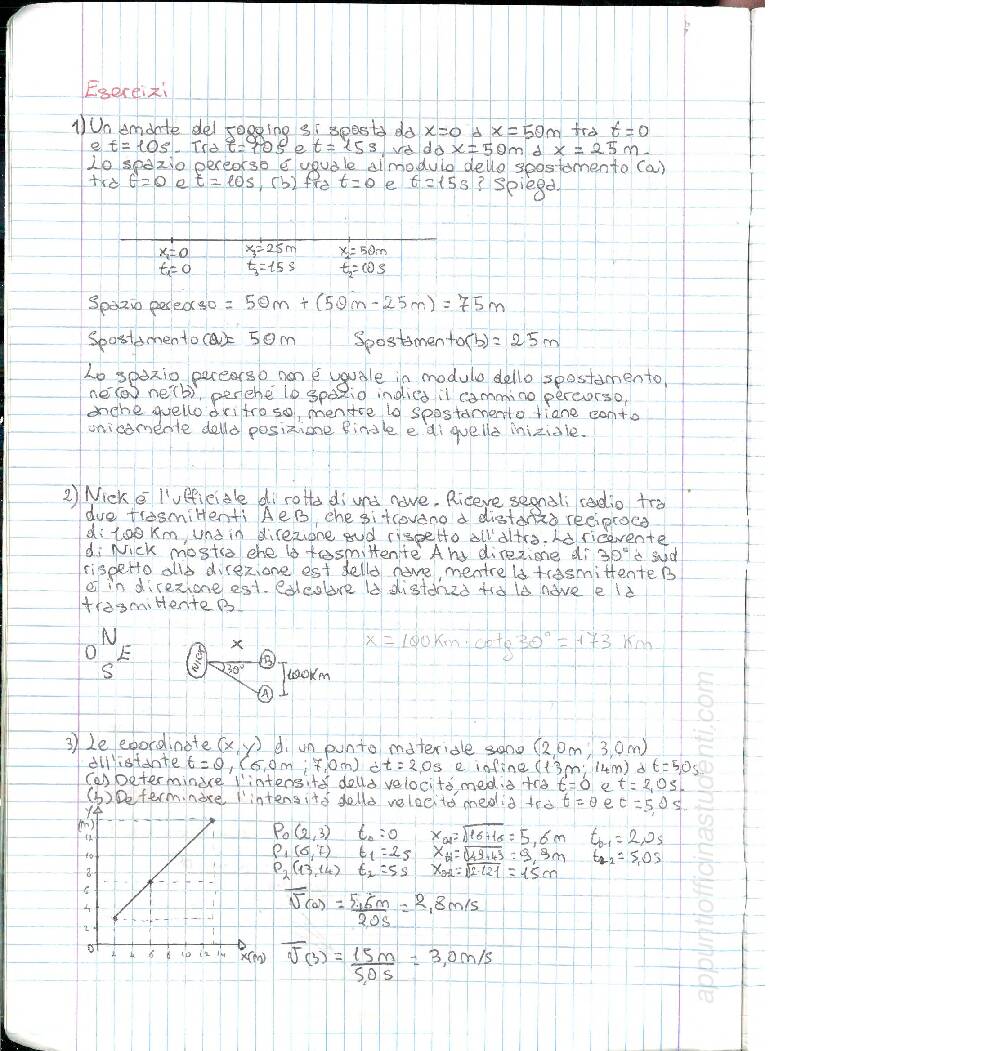 Esercizi
1) Un amante del jogging si sposta da x=0 a x=50m tra t=0
e t=10s. Tra t=10s e t=15s, va da x=50m a x=25m.
Lo spazio percorso é uguale al modulo dello spostamento (a)
tra t=0 e t=10s, (b) tra t=0 e t=15s? Spiega.
x₁=0 x₃=25m x₂=50m
t₁=0 t₃=15s t₂=10s
Spazio percorso = 50m + (50m-25m) = 75m
Spostamento(a)= 50m Spostamento(b)= 25m
Lo spazio percorso non é uguale in modulo dello spostamento,
né(a) né(b), perché lo spazio indica il cammino percorso,
anche quello a ritroso, mentre lo spostamento tiene conto
unicamente della posizione finale e di quella iniziale.
2) Nick é l'ufficiale di rotta di una nave. Riceve segnali radio tra
due trasmittenti A e B, che si trovano a distanza reciproca
di 100 Km, una in direzione sud rispetto all'altra. La ricevente
di Nick mostra che la trasmittente A ha direzione di 30° a sud
rispetto alla direzione est della nave, mentre la trasmittente B
é in direzione est. Calcolare la distanza tra la nave e la
trasmittente B.
N
O E
S
Nick x 30° B A 100Km
x = 100Km · cotg 30° = 173 Km
3) Le coordinate (x,y) di un punto materiale sono (2,0m; 3,0m)
all'istante t=0, (6,0m; 7,0m) a t=2,0s e infine (13m; 14m) a t=5,0s.
(a) Determinare l'intensitá della velocitá media tra t=0 e t=2,0s.
(b) Determinare l'intensitá della velocitá media tra t=0 e t=5,0s.
y (m)
12
10
8
6
4
2
0 2 4 6 8 10 12 14 x(m)
P₀(2,3) t₀=0 x₀₁=√16+16 = 5,6m t₀₋₁=2,0s
P₁(6,7) t₁=2s =√49+49 = 9,9m t₀₋₂=5,0s
P₂(13,14) t₂=5s = 15m
V(a) = 5,6m / 2,0s = 2,8m/s
V(b) = 15m / 5,0s = 3,0m/s
appuntiofficinastudenti.com